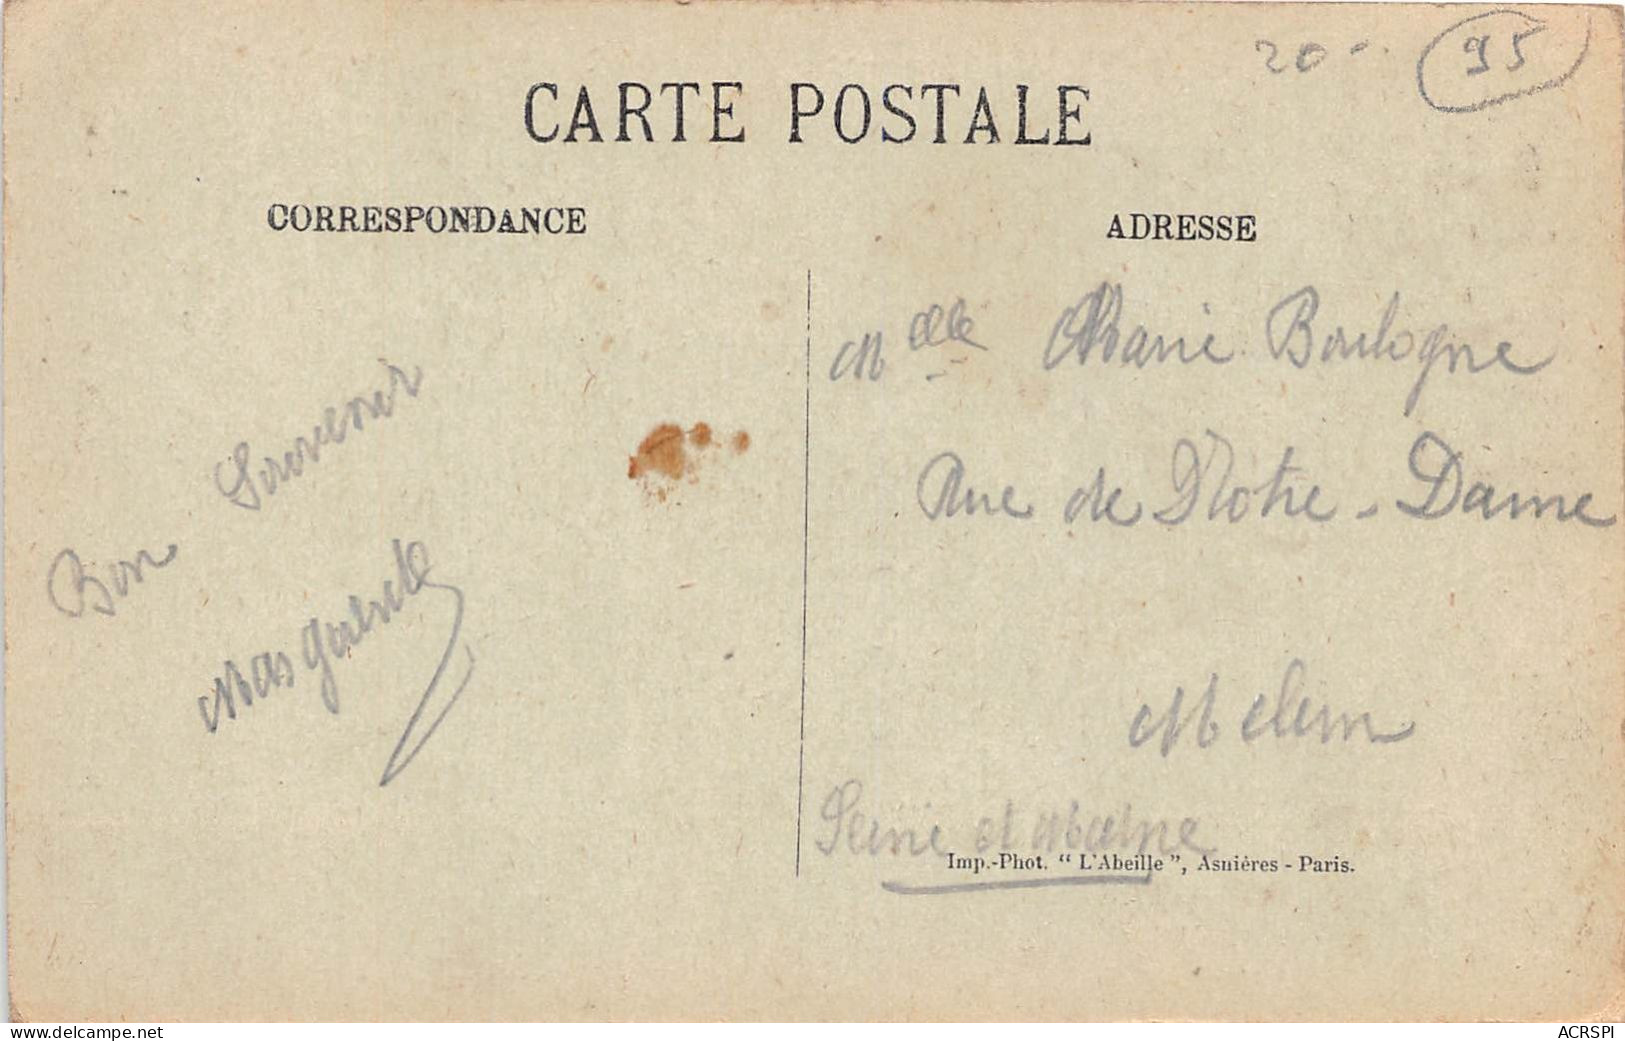 20 -
95
CARTE POSTALE
CORRESPONDANCE
ADRESSE
Bon Souvenir
Mlle Marie Boulogne
Rue de Notre-Dame
Melun
Seine et Marne
Imp.-Phot. “ L'Abeille ”, Asnières - Paris.
www.delcampe.net
ACRSPI